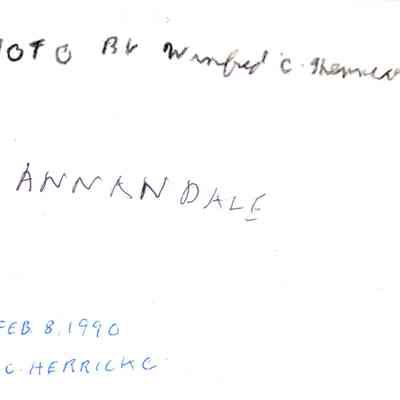 OTO BY Winfred C.
ANNANDALE
FEB. 8, 1990
C. HERRICK